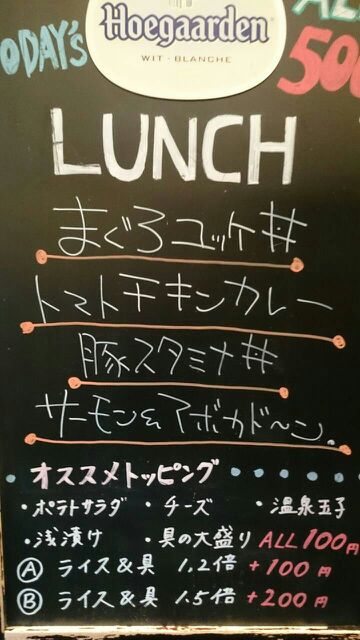 Hoegaarden
WIT · BLANCHE
ODAY's
AL
500
LUNCH
まぐろユッケ丼
トマトチキンカレー
豚スタミナ丼
サーモン&アボカド〜ン.
・オススメトッピング
・ポテトサラダ ・チーズ ・温泉玉子
・浅漬け ・具の大盛り ALL 100円
Ⓐ ライス&具 1.2倍 +100円
Ⓑ ライス&具 1.5倍 +200円